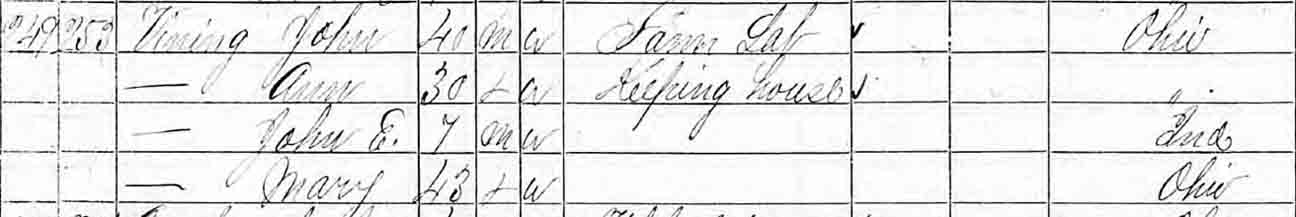 249 253 Vining John 40 m w Farm Lab Ohio
— Ann 30 f w Keeping house "
— John E. 7 m w Ind
— Mary 43 f w Ohio